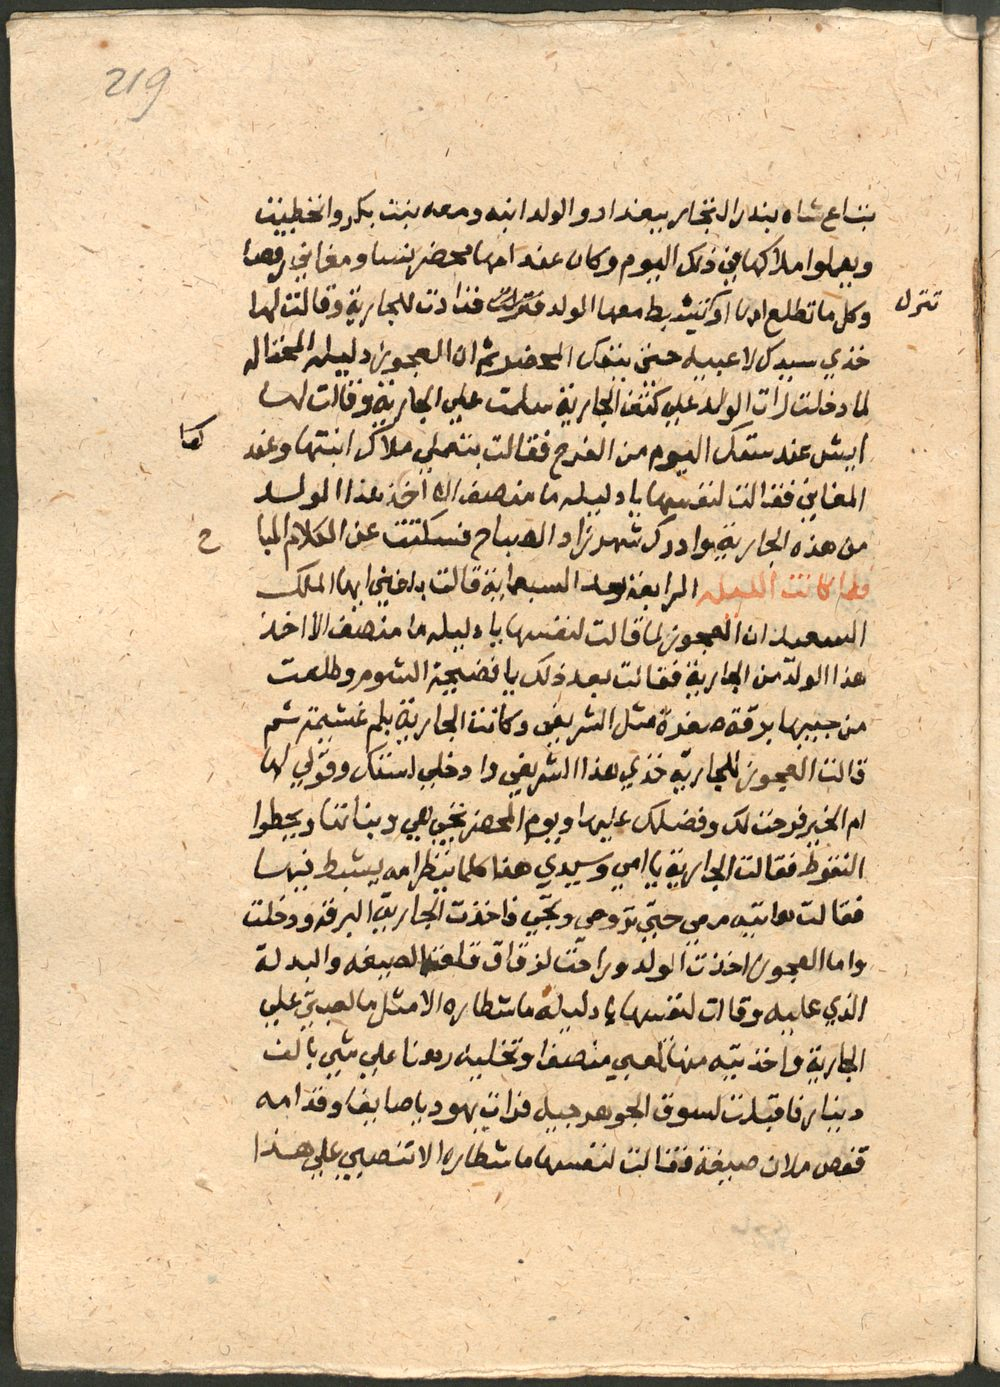 219
بتاع شاه بندر التجار ببغداد والولد ابنه ومعه بنت بكر وانخطبت
ويعملوا املاكها في ذلك اليوم وكان عند امها محضر نسا ومغاني
وكل ما تطلع امه او تنزل يشبط معها الولد فنادت للجارية وقالت لها
تنزل
خذي سيدك لاعبيه حتى ينفك المحضر ثم ان العجوز دليله المحتاله
لما دخلت رات الولد على كتف الجارية سلمت علي الجارية وقالت لها
ايش عند ستك اليوم من الفرح فقالت بتعملي ملاك ابنتها وعندها
المغاني فقالت لنفسها يا دليله ما منصف الا اخذ هذا الولد
من هذه الجارية وادرك شهرزاد الصباح فسكتت عن الكلام المبا
ح
فلما كانت الليله الرابعة بعد السبعماية قالت بلغني ايها الملك
السعيد ان العجوز لما قالت لنفسها يا دليله ما منصف الا اخذ
هذا الولد من الجارية فقالت بعد ذلك يا فضيحة الشوم وطلعت
من جيبها برقة صفرة مثل الشريفي وكانت الجارية بلم غشيمة ثم
قالت العجوز للجارية خذي هذا الشريفي وادخلي لستك وقولي لها
ام الخير فرحت لك وفضلك عليها ويوم المحضر تجي هي وبناتها ويحطوا
النقوط فقالت الجارية يا امي وسيدي هذا كلما ينظر امه يشبط فيها
فقالت هاتيه معي حتي تروحي وتجي فاخذت الجارية البرقة ودخلت
واما العجوز اخذت الولد وراحت لزقاق قلعته الصيغه والبدلة
الذي عليه وقالت لنفسها يا دليلة ما شطاره الا مثل ما لعبتي علي
الجارية واخذتيه منها تلعبي منصف وتخليه رهنا علي شي بالف
دينار فاقبلت لسوق الجوهرجيه فرات يهوديا صايغا وقدامه
قفص ملان صيغة فقالت لنفسها ما شطاره الا تنصبي علي هذا